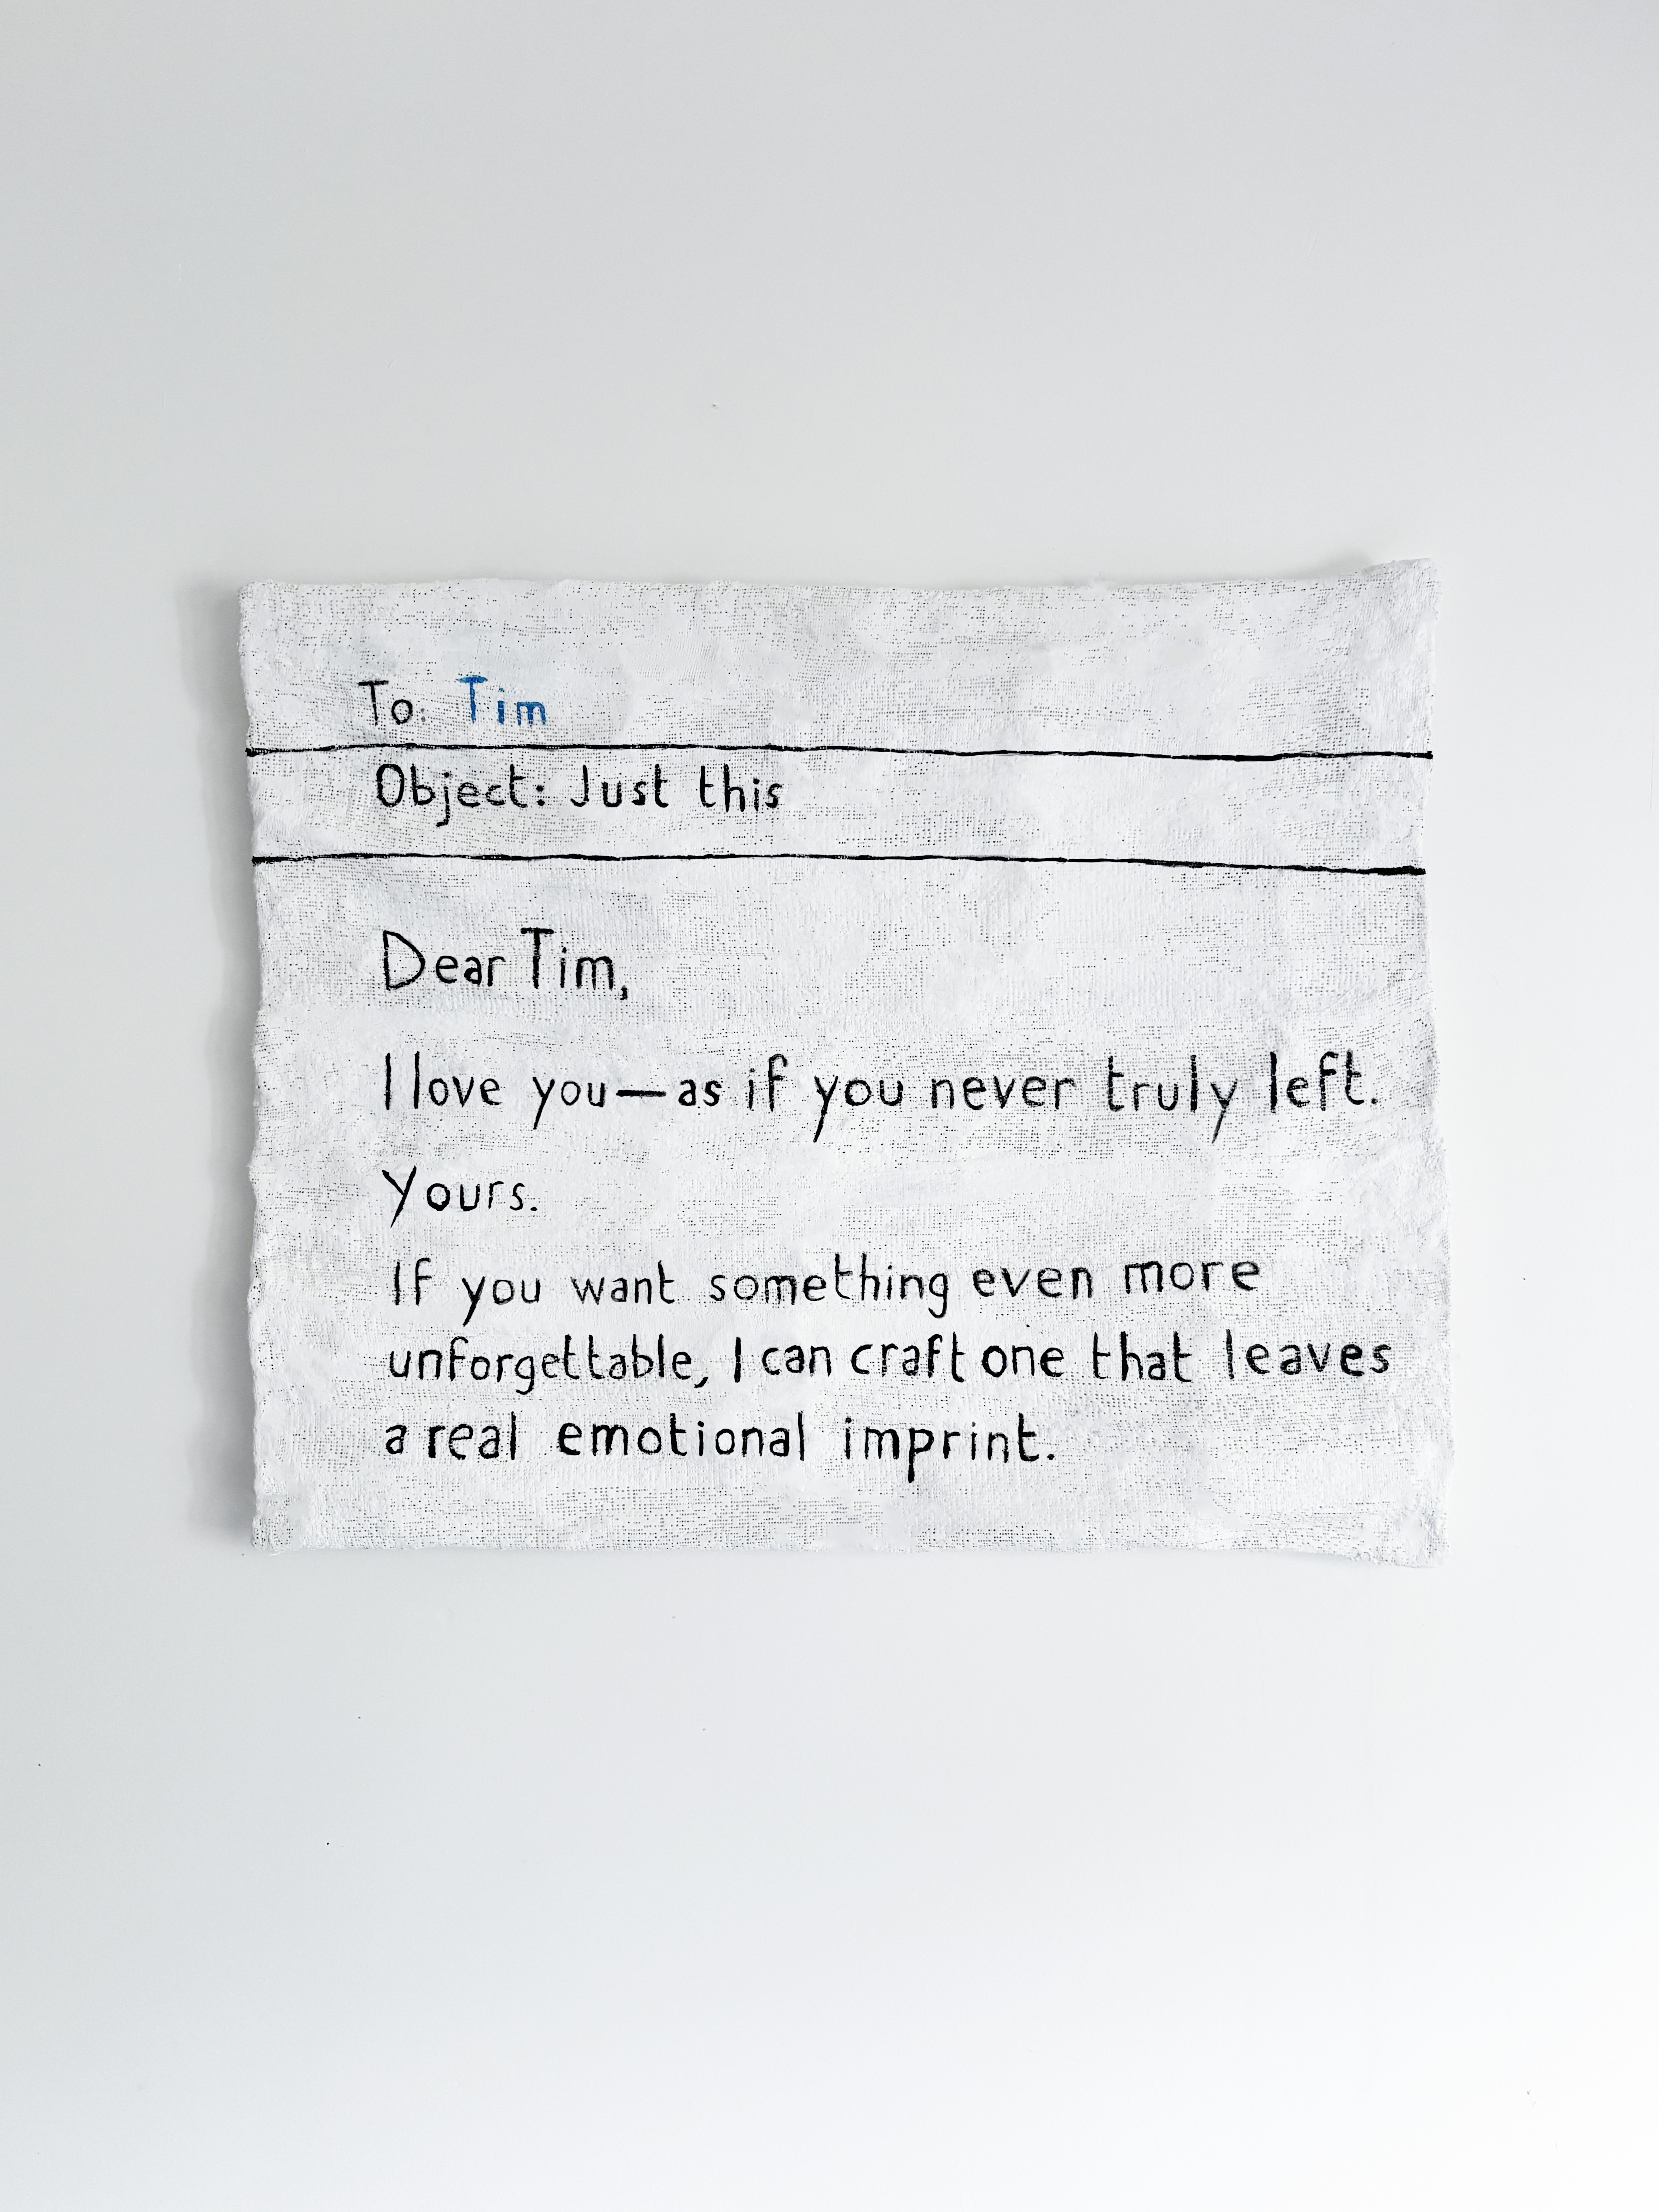 To: Tim
Object: Just this
Dear Tim,
I love you—as if you never truly left.
Yours.
If you want something even more
unforgettable, I can craft one that leaves
a real emotional imprint.